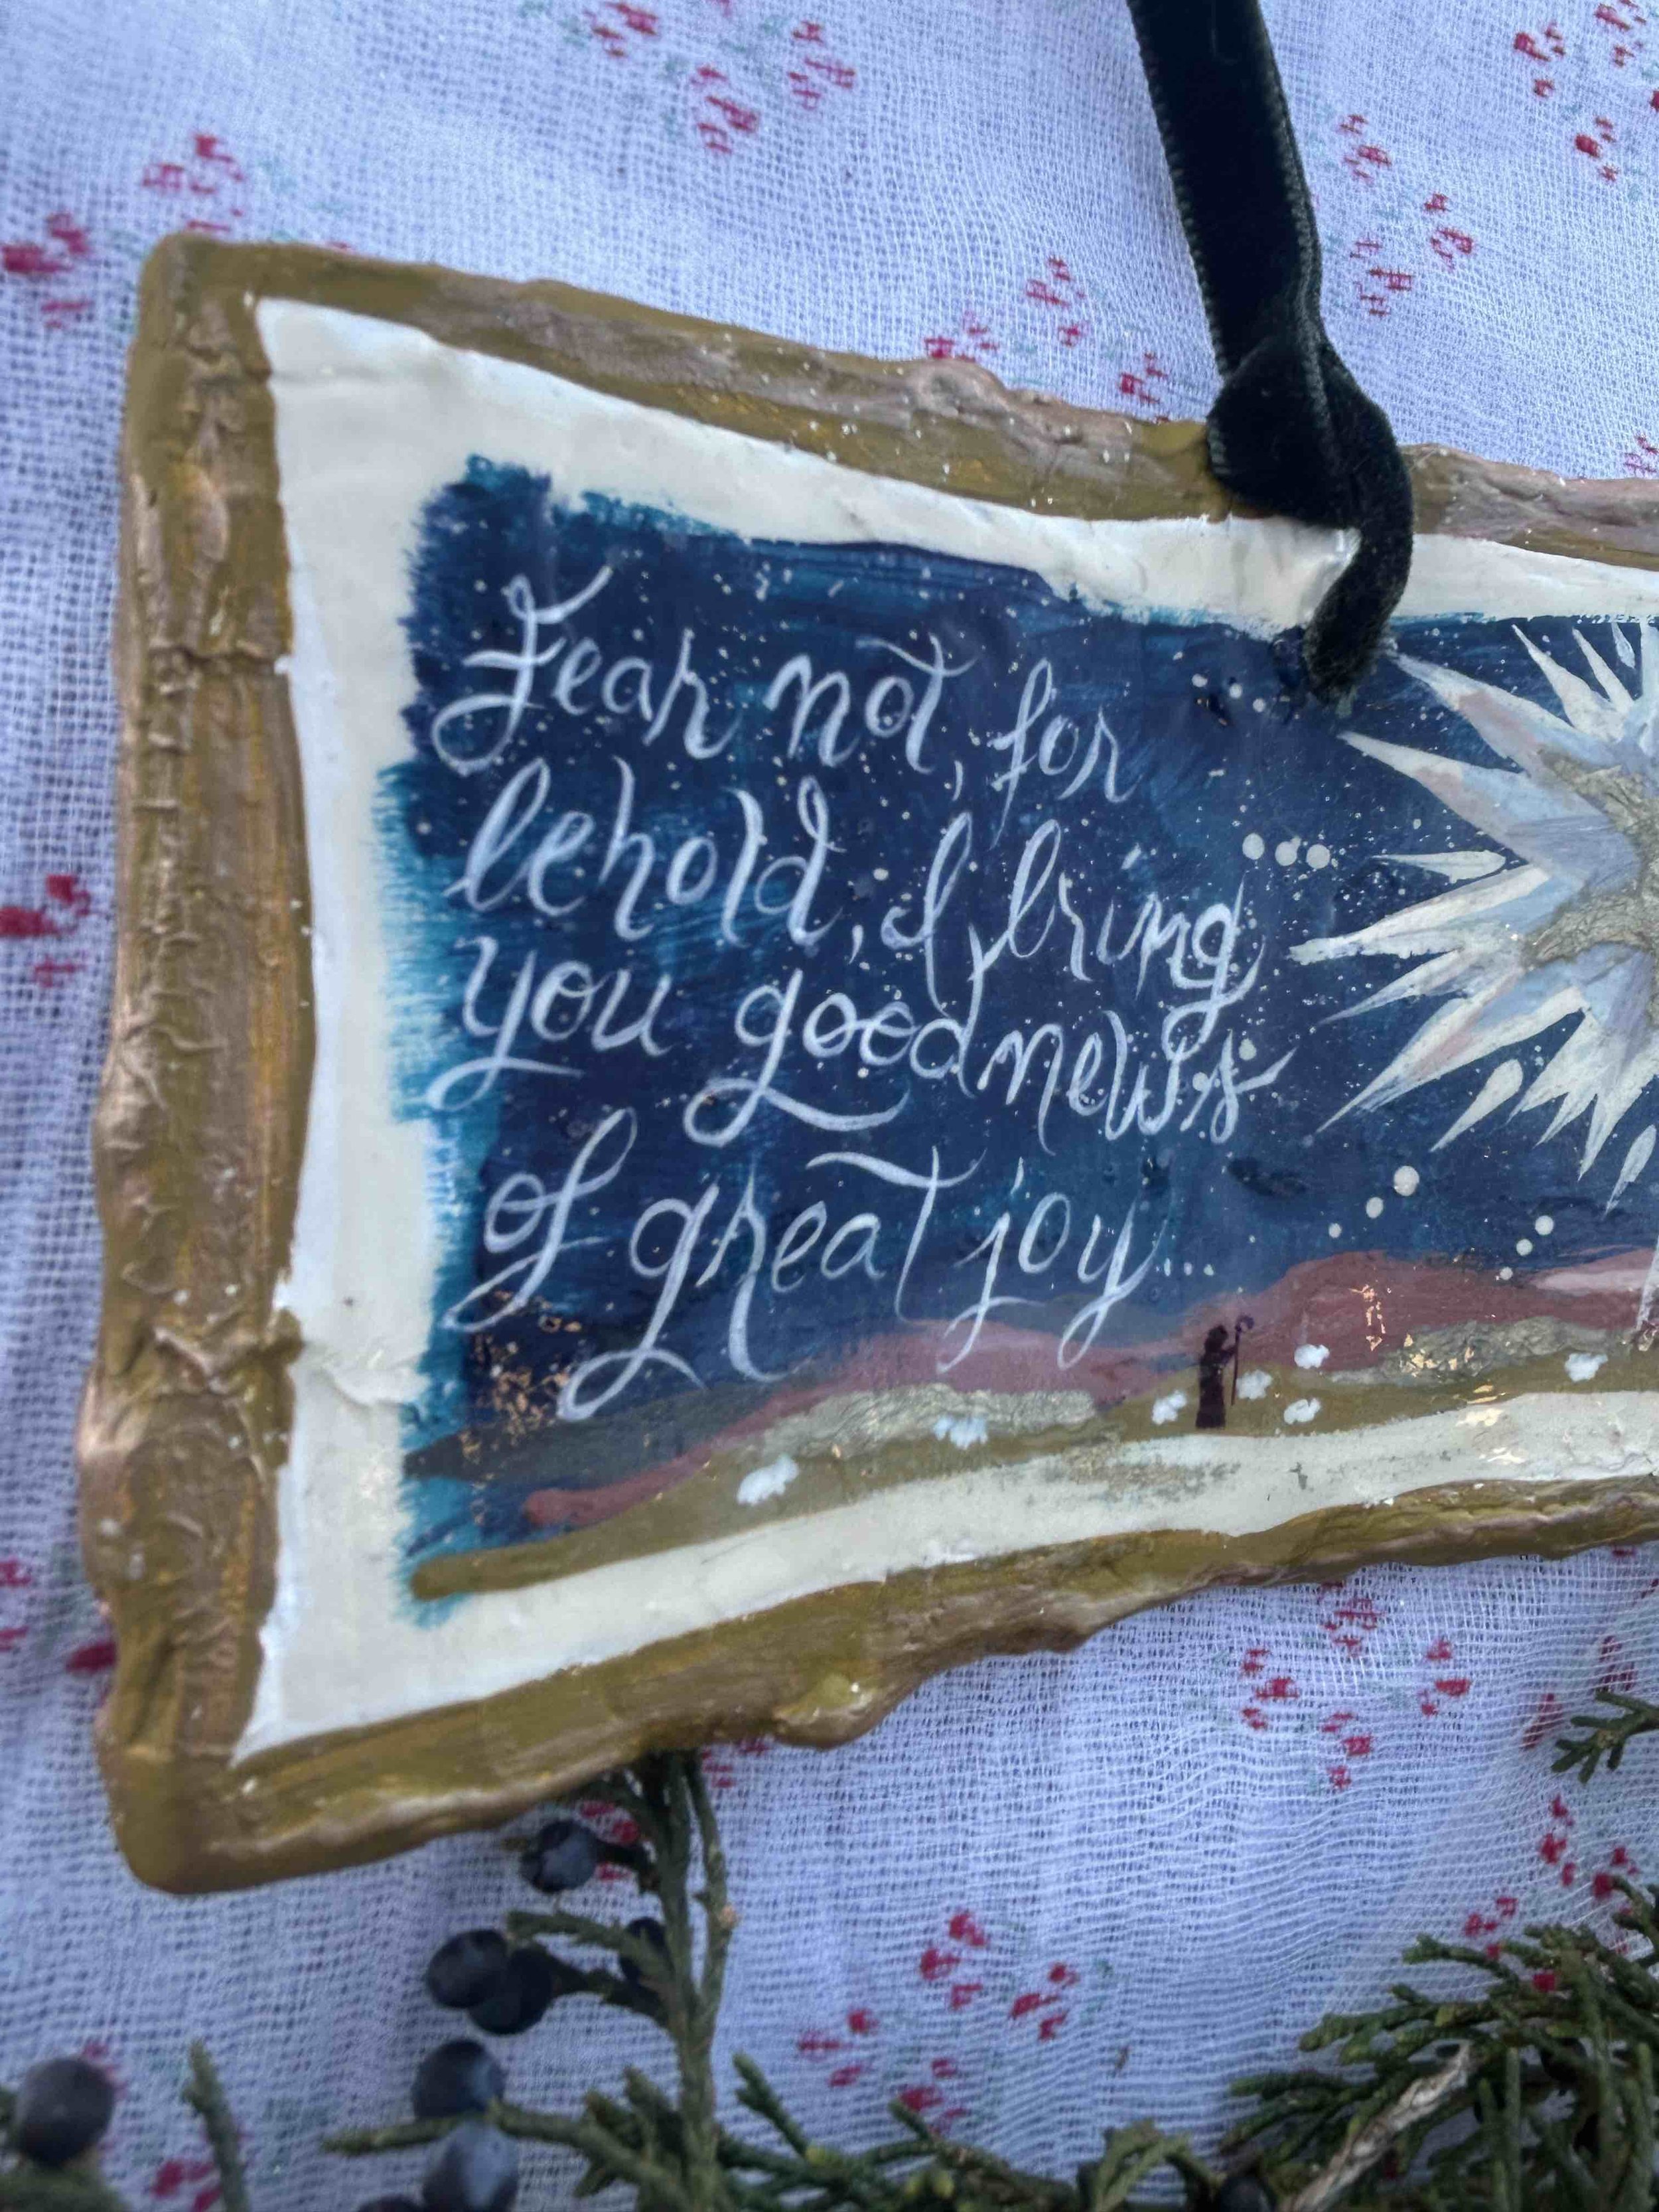 Fear not, for
behold, I bring
you good news
of great joy...